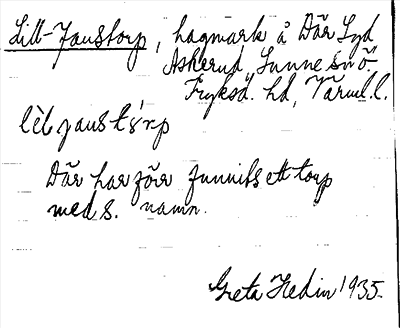 Lill-Janstorp, hagmark å Där Syd
Askerud, Sunne sn ö
Fryksd. hd, Värml. l.
Där har förr funnits ett torp
med s. namn.
Greta Hedin 1935.